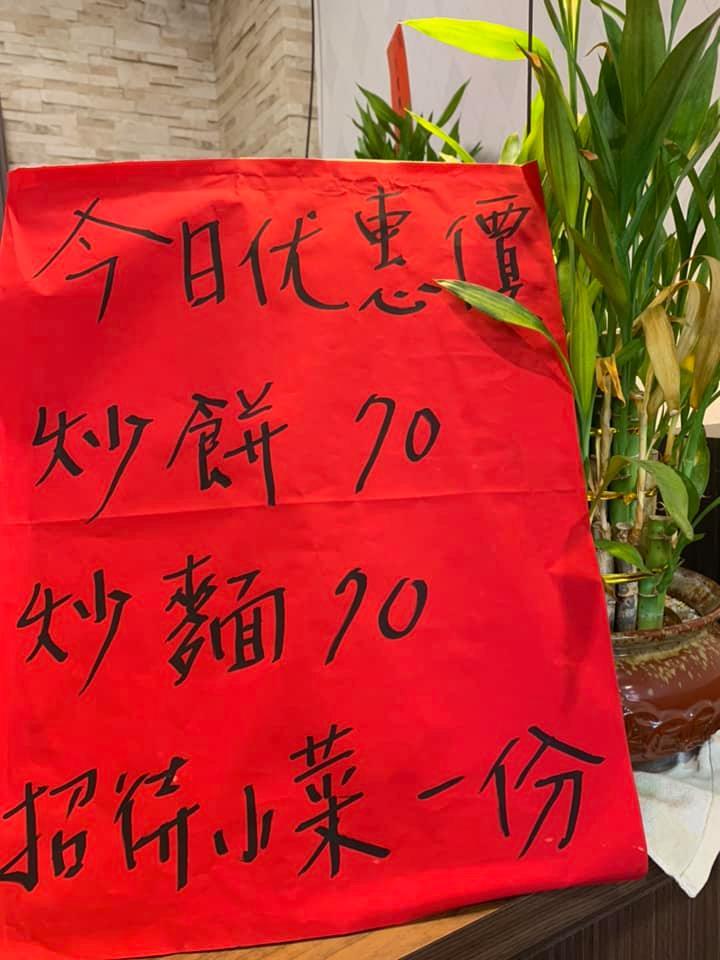 今日优惠價
炒餅 70
炒麵 70
招待小菜一份